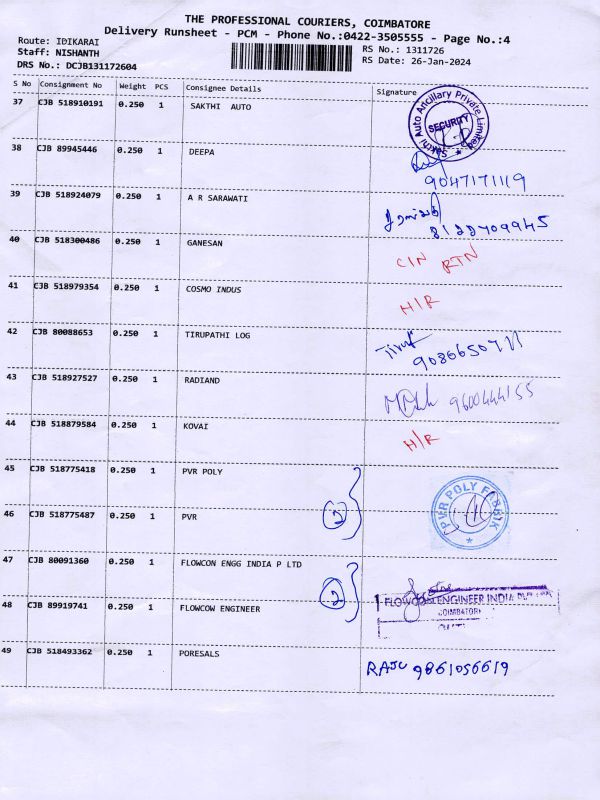 THE PROFESSIONAL COURIERS, COIMBATORE
Delivery Runsheet - PCM - Phone No.:0422-3505555 - Page No.:4
Route: IDIKARAI
RS No.: 1311726
Staff: NISHANTH
RS Date: 26-Jan-2024
DRS No.: DCJB131172604
S No Consignment No Weight PCS Consignee Details Signature
37 CJB 518910191 0.250 1 SAKTHI AUTO
Sakthi Auto Ancillary Private Limited
SECURITY
38 CJB 89945446 0.250 1 DEEPA
9047171119
39 CJB 518924079 0.250 1 A R SARAWATI
8122709945
40 CJB 518300486 0.250 1 GANESAN C/N RTN
41 CJB 518979354 0.250 1 COSMO INDUS H/R
42 CJB 80088653 0.250 1 TIRUPATHI LOG
43 CJB 518927527 0.250 1 RADIAND 9600444155
44 CJB 518879584 0.250 1 KOVAI H/R
45 CJB 518775418 0.250 1 PVR POLY
PVR POLY FABRIK
46 CJB 518775487 0.250 1 PVR 2
47 CJB 80091360 0.250 1 FLOWCON ENGG INDIA P LTD
48 CJB 89919741 0.250 1 FLOWCOW ENGINEER 2
FLOWCON ENGINEER INDIA
COIMBATORE
49 CJB 518493362 0.250 1 PORESALS RAJU 9861056619